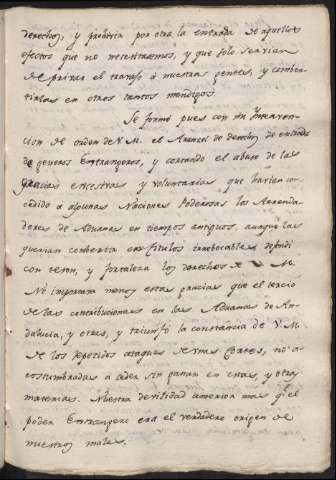 derechos, y prohivia por otra la entrada de aquellos
efectos que no necesitasemos, y que solo servian
de privar el travajo à nuestras gentes, y conber-
tirlas en otros tantos mendigos.
Se formó pues con mi Interven-
cion de orden de V. M. el Arancel de derechos de entrada
de generos Extrangeros, y cortando el abuso de las
gracias excesivas y voluntarias que havian con-
cedido a algunas Naciones Poderosas los Arrenda-
dores de Aduanas en tiempos antiguos, aunque las
querian conbertir en titulos irrebocables, defendi
con teson, y fortaleza los derechos de V. M.
No importava menos estas gracias que el tercio
de las contribuciones en las Aduanas de An-
dalucia, y otras, y triunfó la constancia de V. M.
de los repetidos ataques de varias Cortes, no a-
costumbradas a ceder sin ganar en estas, y otras
materias. Nuestra devilidad anterior mas q.e el
poder Extrangero era el verdadero origen de
nuestros males.